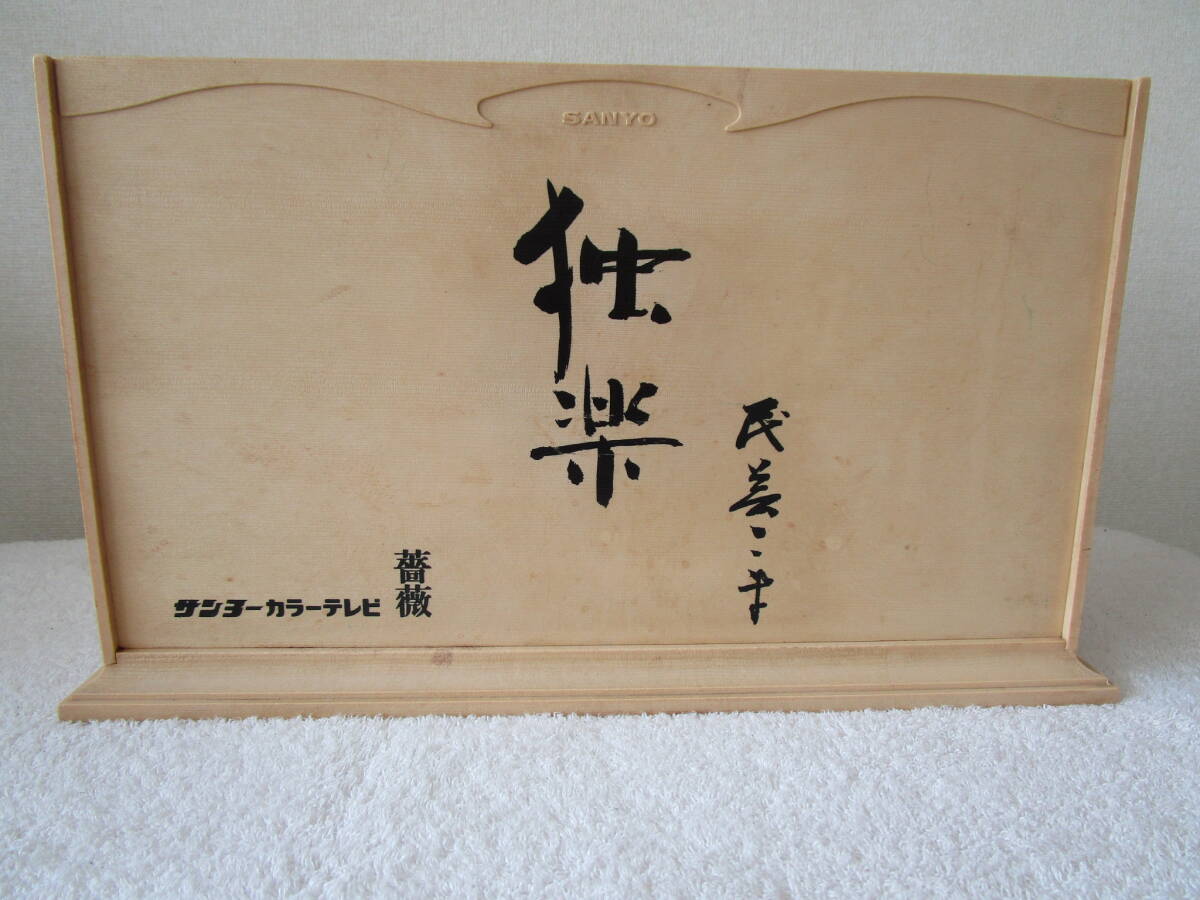 SANYO
独楽
民芸こま
サンヨーカラーテレビ
薔薇